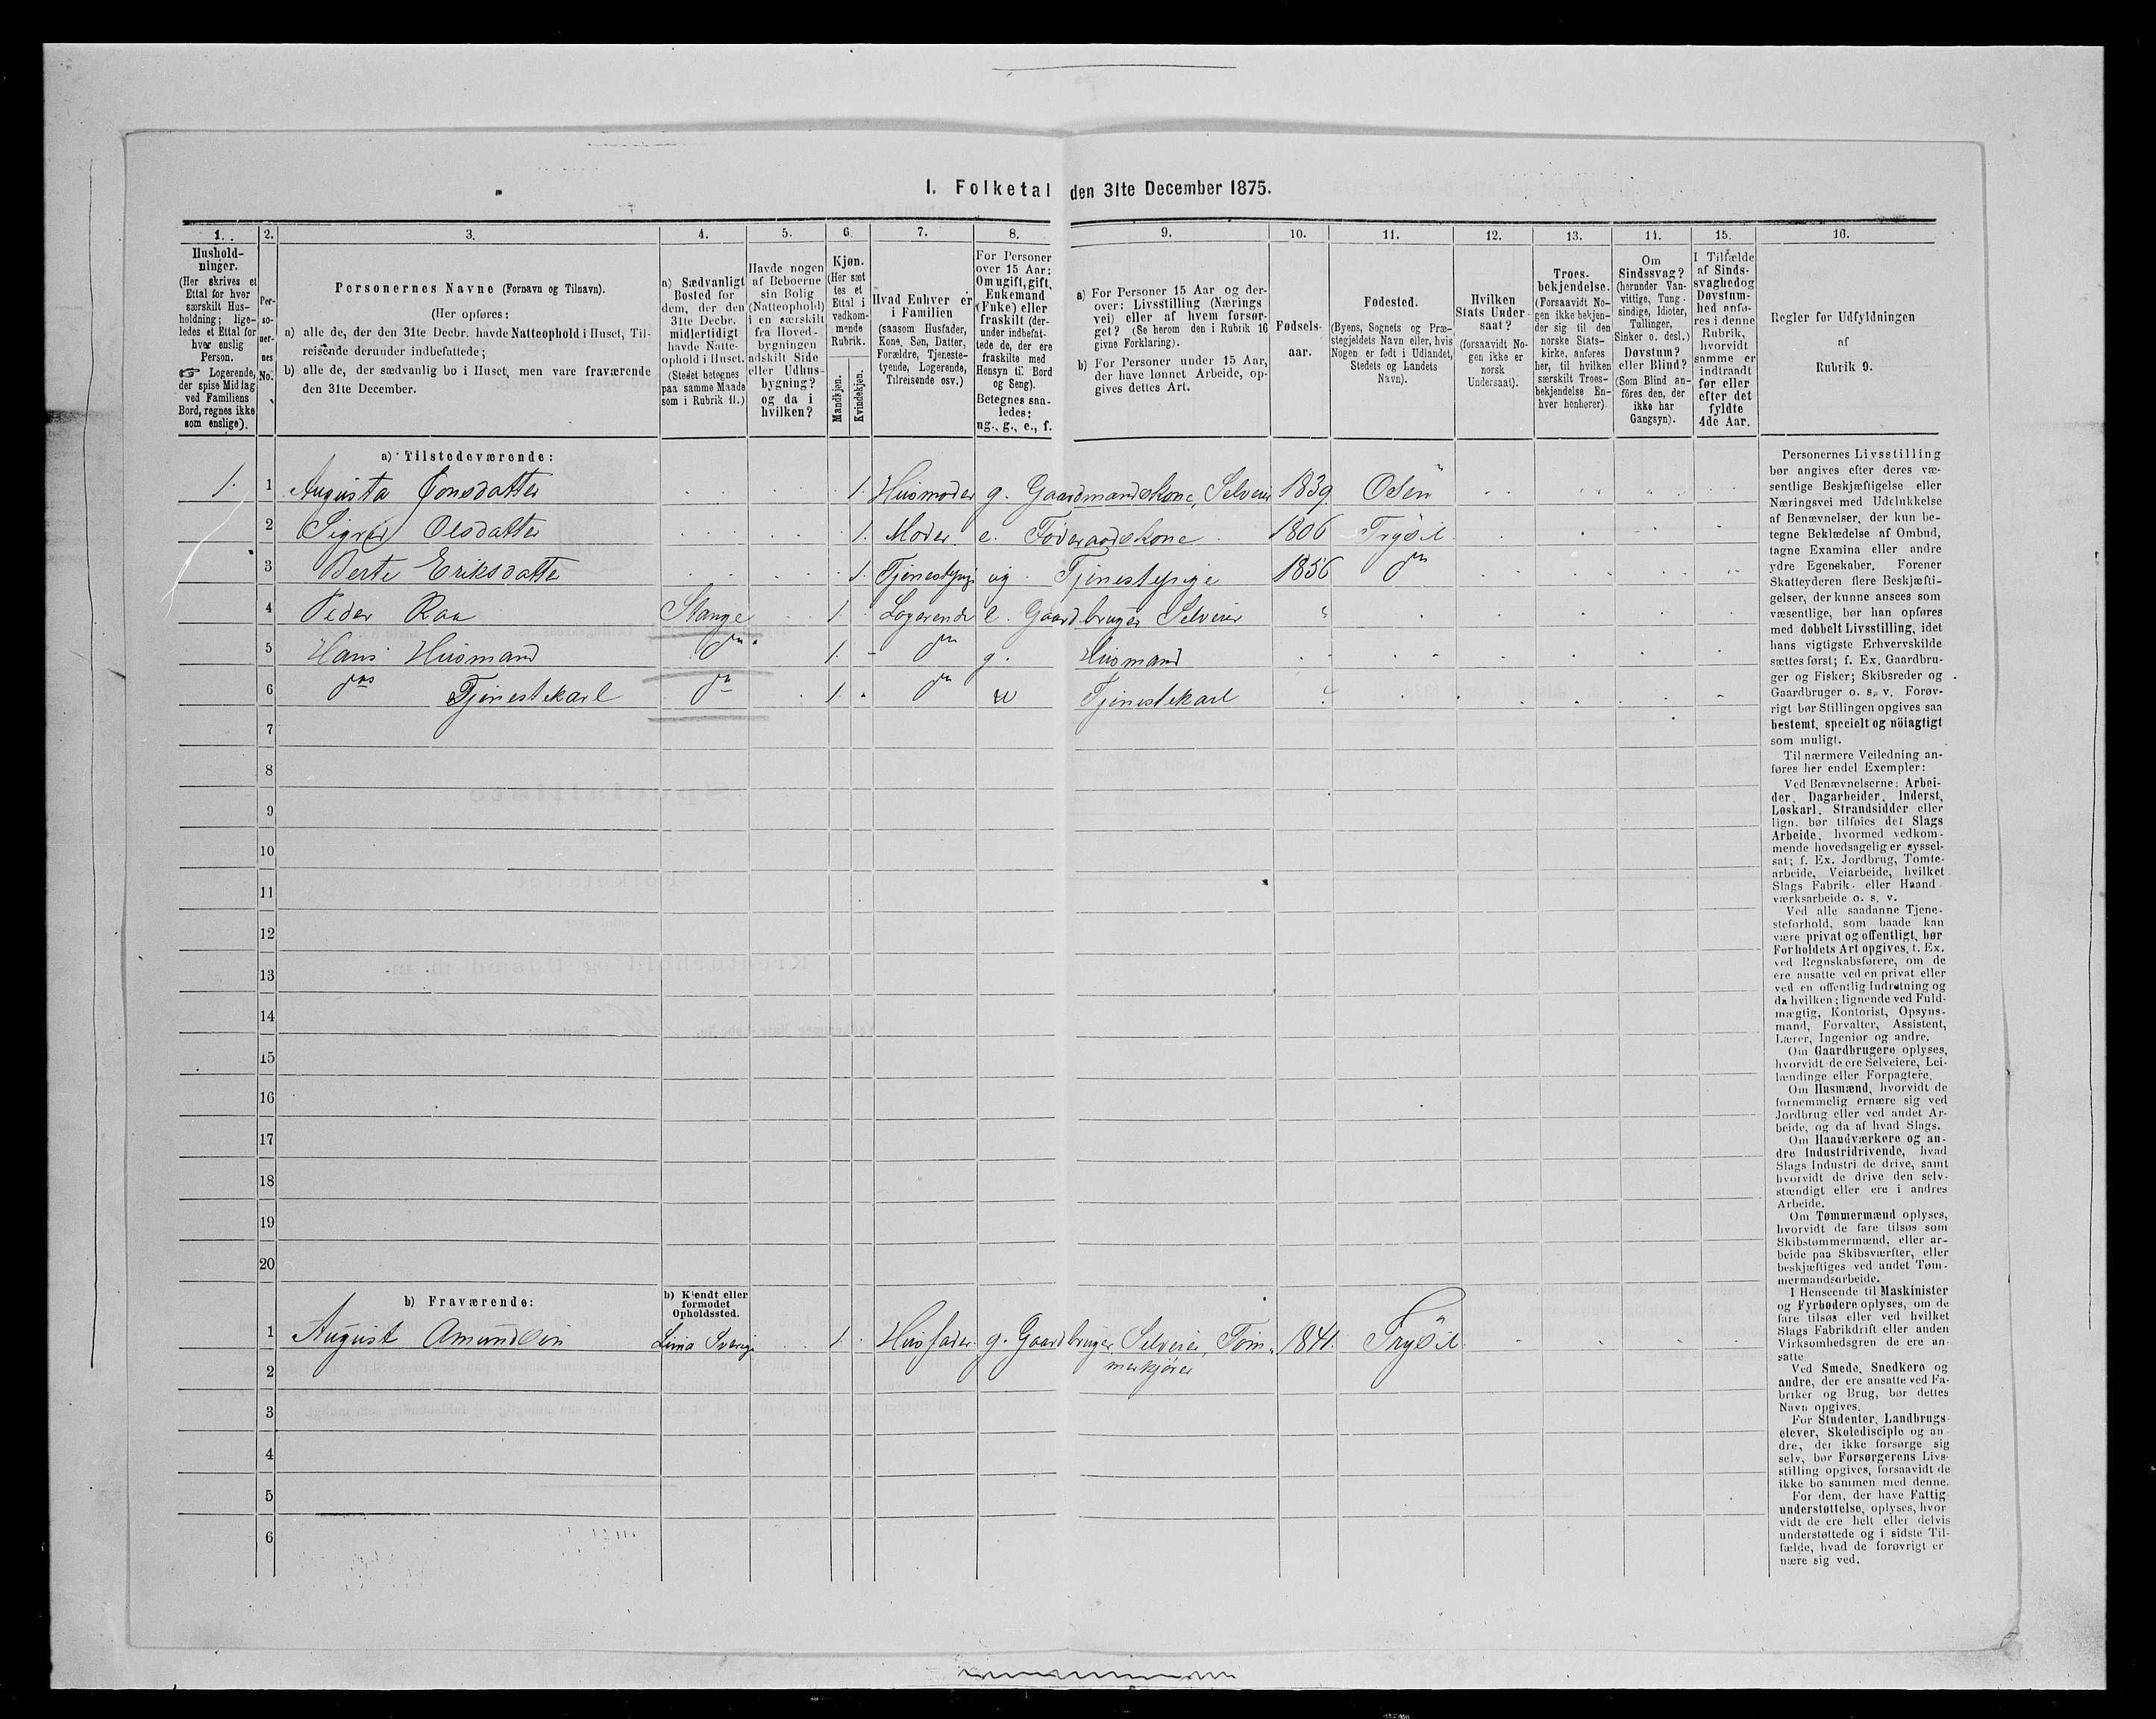 I. Folketal den 31te December 1875.
1. 2. 3. 4. 5. 6. 7. 8. 9. 10. 11. 12. 13. 14. 15. 16.
Hushold-
ninger.
(Her skrives et
Ettal for hver
særskilt Hus-
holdning; lige-
ledes et Ettal for
hver enslig
Person.
☞ Logerende,
der spise Middag
ved Familiens
Bord, regnes ikke
som enslige).
Per-
so-
ner-
nes
No.
Personernes Navne (Fornavn og Tilnavn).
(Her opføres:
a) alle de, der den 31te Decbr. havde Natteophold i Huset, Til-
reisende derunder indbefattede;
b) alle de, der sædvanlig bo i Huset, men vare fraværende
den 31te December.
a) Sædvanligt
Bosted for
dem, der den
31te Decbr.
midlertidigt
havde Natte-
ophold i Huset.
(Stedet betegnes
paa samme Maade
som i Rubrik 11.)
Havde nogen
af Beboerne
sin Bolig
(Natteophold)
i en særskilt
fra Hoved-
bygningen
adskilt Side
eller Udhus-
bygning?
og da i
hvilken?
Kjøn.
(Her sæt
tes et
Ettal i
vedkom-
mende
Rubrik.
Mandkjøn.
Kvindekjøn.
Hvad Enhver er
i Familien
(saasom Husfader,
Kone, Søn, Datter,
Forældre, Tjeneste-
tyende, Logerende,
Tilreisende osv.)
For Personer
over 15 Aar:
Om ugift, gift,
Enkemand
(Enke) eller
fraskilt (der-
under indbefat-
tede de, der ere
fraskilte med
Hensyn til Bord
og Seng).
Betegnes saa-
ledes:
ug., g., e., f.
a) For Personer 15 Aar og der-
over: Livsstilling (Nærings
vei) eller af hvem forsør-
get? (Se herom den i Rubrik 16
givne Forklaring).
b) For Personer under 15 Aar,
der have lønnet Arbeide, op-
gives dettes Art.
Fødsels-
aar.
Fødested.
(Byens, Sognets og Præ-
stegjeldets Navn eller, hvis
Nogen er født i Udlandet,
Stedets og Landets
Navn).
Hvilken
Stats Under-
saat?
(forsaavidt No-
gen ikke er
norsk
Undersaat).
Troes-
bekjendelse.
(Forsaavidt No-
gen ikke bekjen-
der sig til den
norske Stats-
kirke, anføres
her, til hvilken
særskilt Troes-
bekjendelse En-
hver henhører).
Om
Sindssvag?
(herunder Van-
vittige, Tung-
sindige, Idioter,
Tullinger,
Sinker o. desl.)
Døvstum?
eller Blind?
(Som Blind an-
føres den, der
ikke har
Gangsyn).
I Tilfælde
af Sinds-
svaghed og
Døvstum-
hed anfø-
res i denne
Rubrik,
hvorvidt
samme er
indtraadt
før eller
efter det
fyldte
4de Aar.
Regler for Udfyldningen
af
Rubrik 9.
a) Tilstedeværende:
1. 1 Augusta Jonsdatter 1. Husmoder g. Gaardmandskone, Selveier 1839 Osen
2 Sigrid Olsdatter 1. Moder e. Føderaadskone 1806 Trysil
3 Berte Eriksdatter 1. Tjenestepige ug. Tjenestepige 1856 do
4 Peder Raa Stange 1. Logerende e. Gaardbruger Selveier
5 Hans Husmand do 1. do g. Husmand
6 do Tjenestekarl do 1. do u Tjenestekarl
7
8
9
10
11
12
13
14
15
16
17
18
19
20
b) Fraværende:
b) Kjendt eller
formodet
Opholdssted.
1 August Amundsen Lima Sverige 1. Husfader g. Gaardbruger, Selveier, Tøm- 1841. Trysil
2 merkjører
3
4
5
6
Personernes Livsstilling
bør angives efter deres væ-
sentlige Beskjæftigelse eller
Næringsvei med Udelukkelse
af Benævnelser, der kun be-
tegne Beklædelse af Ombud,
tagne Examina eller andre
ydre Egenskaber. Forener
Skatteyderen flere Beskjæfti-
gelser, der kunne ansees som
væsentlige, bør han opføres
med dobbelt Livsstilling, idet
hans vigtigste Erhvervskilde
sættes først; f. Ex. Gaardbru-
ger og Fisker; Skibsreder og
Gaardbruger o. s. v. Forøv-
rigt bør Stillingen opgives saa
bestemt, specielt og nøiagtigt
som muligt.
Til nærmere Veiledning an-
føres her endel Exempler:
Ved Benævnelserne: Arbei-
der, Dagarbeider, Inderst,
Løskarl, Strandsidder eller
lign. bør tilføies det Slags
Arbeide, hvormed vedkom-
mende hovedsagelig er syssel-
sat; f. Ex. Jordbrug, Tomte-
arbeide, Veiarbeide, hvilket
Slags Fabrik- eller Haand-
værksarbeide o. s. v.
Ved alle saadanne Tjene-
steforhold, som baade kan
være privat og offentligt, bør
Forholdets Art opgives, f. Ex.
ved Regnskabsførere, om de
ere ansatte ved en privat eller
ved en offentlig Indretning og
da hvilken; lignende ved Fuld-
mægtig, Kontorist, Opsyns-
mand, Forvalter, Assistent,
Lærer, Ingeniør og andre.
Om Gaardbrugere oplyses,
hvorvidt de ere Selveiere, Lei-
lændinge eller Forpagtere.
Om Husmænd, hvorvidt de
fornemmelig ernære sig ved
Jordbrug eller ved andet Ar-
beide, og da af hvad Slags.
Om Haandværkere og an-
dre Industridrivende, hvad
Slags Industri de drive, samt
hvorvidt de drive den selv-
stændigt eller ere i andres
Arbeide.
Om Tømmermænd oplyses,
hvorvidt de fare tilsøs som
Skibstømmermænd, eller ar-
beide paa Skibsværfter, eller
beskjæftiges ved andet Tøm-
mermandsarbeide.
I Henseende til Maskinister
og Fyrbødere oplyses, om de
fare tilsøs eller ved hvilket
Slags Fabrikdrift eller anden
Virksomhedsgren de ere an-
satte
Ved Smede, Snedkere og
andre, der ere ansatte ved Fa-
briker og Brug, bør dettes
Navn opgives.
For Studenter, Landbrugs-
elever, Skoledisciple og an-
dre, der ikke forsørge sig
selv, bør Forsørgerens Livs-
stilling opgives, forsaavidt de
ikke bo sammen med denne.
For dem, der have Fattig-
understøttelse, oplyses, hvor-
vidt de ere helt eller delvis
understøttede og i sidste Til-
fælde, hvad de forøvrigt er-
nære sig ved.